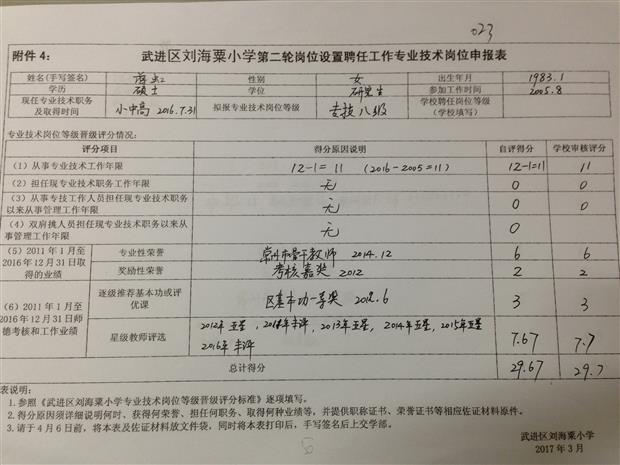 023
附件4： 武进区刘海粟小学第二轮岗位设置聘任工作专业技术岗位申报表
姓名(手写签名) 蒋虹 性别 女 出生年月 1983.1
学历 硕士 学位 研究生 参加工作时间 2005.8
现任专业技术职务及取得时间 小中高 2016.7.31 拟报专业技术岗位等级 专技八级 学校聘任岗位等级（学校填写）
专业技术岗位等级晋级评分情况：
评分项目 得分原因说明 自评得分 学校审核评分
（1）从事专业技术工作年限 12-1=11 （2016-2005=11） 12-1=11 11
（2）担任现专业技术职务工作年限 无 0 0
（3）从事专技工作人员担任现专业技术职务以来从事管理工作年限 无 0 0
（4）双肩挑人员担任现专业技术职务以来从事管理工作年限 无 0
（5）2011年1月至2016年12月31日取得的业绩 专业性荣誉 常州市骨干教师 2014.12 6 6
奖励性荣誉 考核嘉奖 2012 2 2
（6）2011年1月至2016年12月31日师德考核和工作业绩 逐级推荐基本功或评优课 区基本功一等奖 2012.6 3 3
星级教师评选 2012年五星，2011年丰评，2013年五星，2014年五星，2015年五星
2016年丰评 7.67 7.7
总计得分 29.67 29.7
表说明：
1.参照《武进区刘海粟小学专业技术岗位等级晋级评分标准》逐项填写。
2.得分原因须详细说明何时、获得何荣誉、担任何职务、取得何种业绩等，并提供职称证书、荣誉证书等相应佐证材料原件。
3.请于4月6日前，将本表及佐证材料放文件袋，同时将本表打印后，手写签名后上交学部。
武进区刘海粟小学
2017年3月